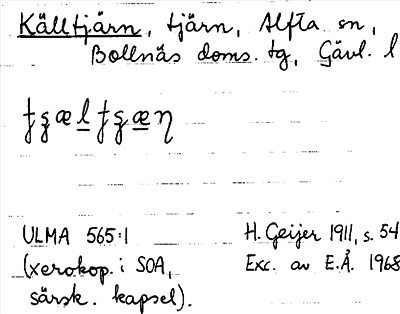 Källtjärn, tjärn, Alfta sn,
Bollnäs doms. tg, Gävl. l
ULMA 565:1
(xerokop. i SOA,
särsk. kapsel).
H. Geijer 1911, s. 54
Exc. av E.Å. 1968